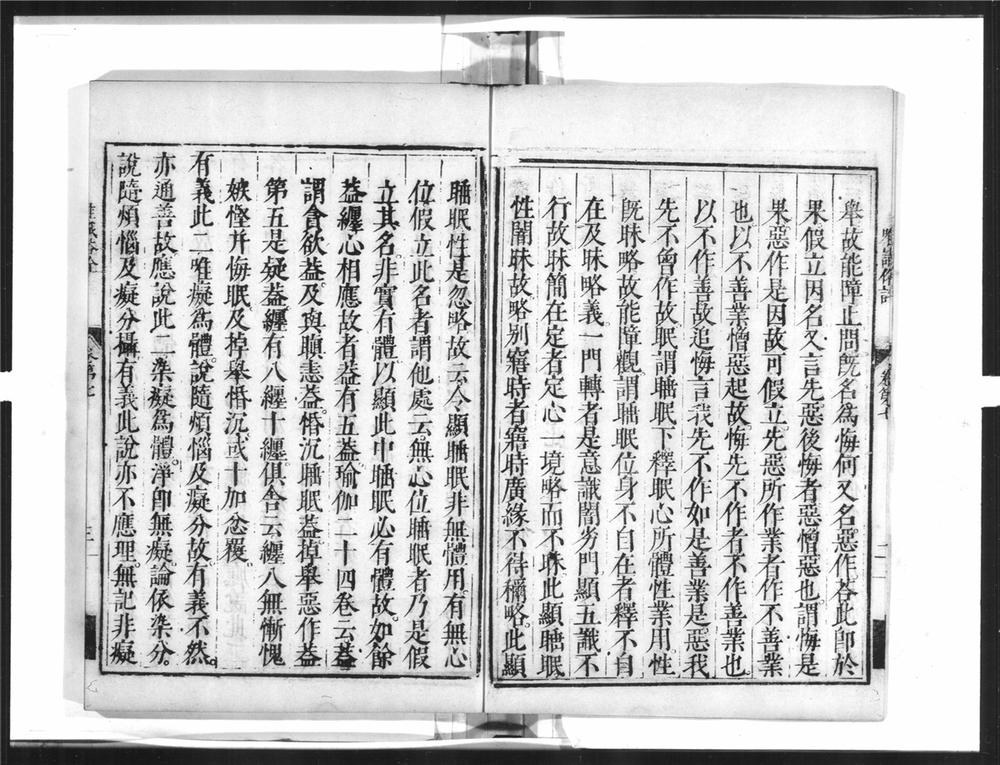 舉故能障止問旣名爲悔何又名惡作荅此卽於
果假立因名又言先惡後悔者惡憎惡也謂悔是
果惡作是因故可假立先惡所作業者作不善業
也以不善業憎惡起故悔先不作者不作善業也
以不作善故追悔言我先不作如是善業是惡我
先不曾作故眠謂睡眠下釋眠心所體性業用性
旣昧略故能障觀謂睡眠位身不自在者釋不自
在及昧略義一門轉者是意識闇劣門顯五識不
行故昧簡在定者定心一境略而不昧此顯睡眠
性闇昧故略别寤時者寤時廣緣不得稱略此顯
睡眠性是忽略故云令顯睡眠非無體用有無心
位假立此名者謂他處云無心位睡眠者乃是假
立其名非實有體以顯此中睡眠必有體故如餘
葢纏心相應故者葢有五葢瑜伽二十四卷云葢
謂貪欲葢及與瞋恚葢惛沉睡眠葢掉舉惡作葢
第五是疑葢纏有八纏十纏俱舍云纏八無慚愧
嫉慳并悔眠及掉舉惛沉或十加忿覆
有義此二唯癡爲體說隨煩惱及癡分故有義不然
亦通善故應說此二染癡爲體淨卽無癡論依染分
說隨煩惱及癡分攝有義此說亦不應理無記非癡